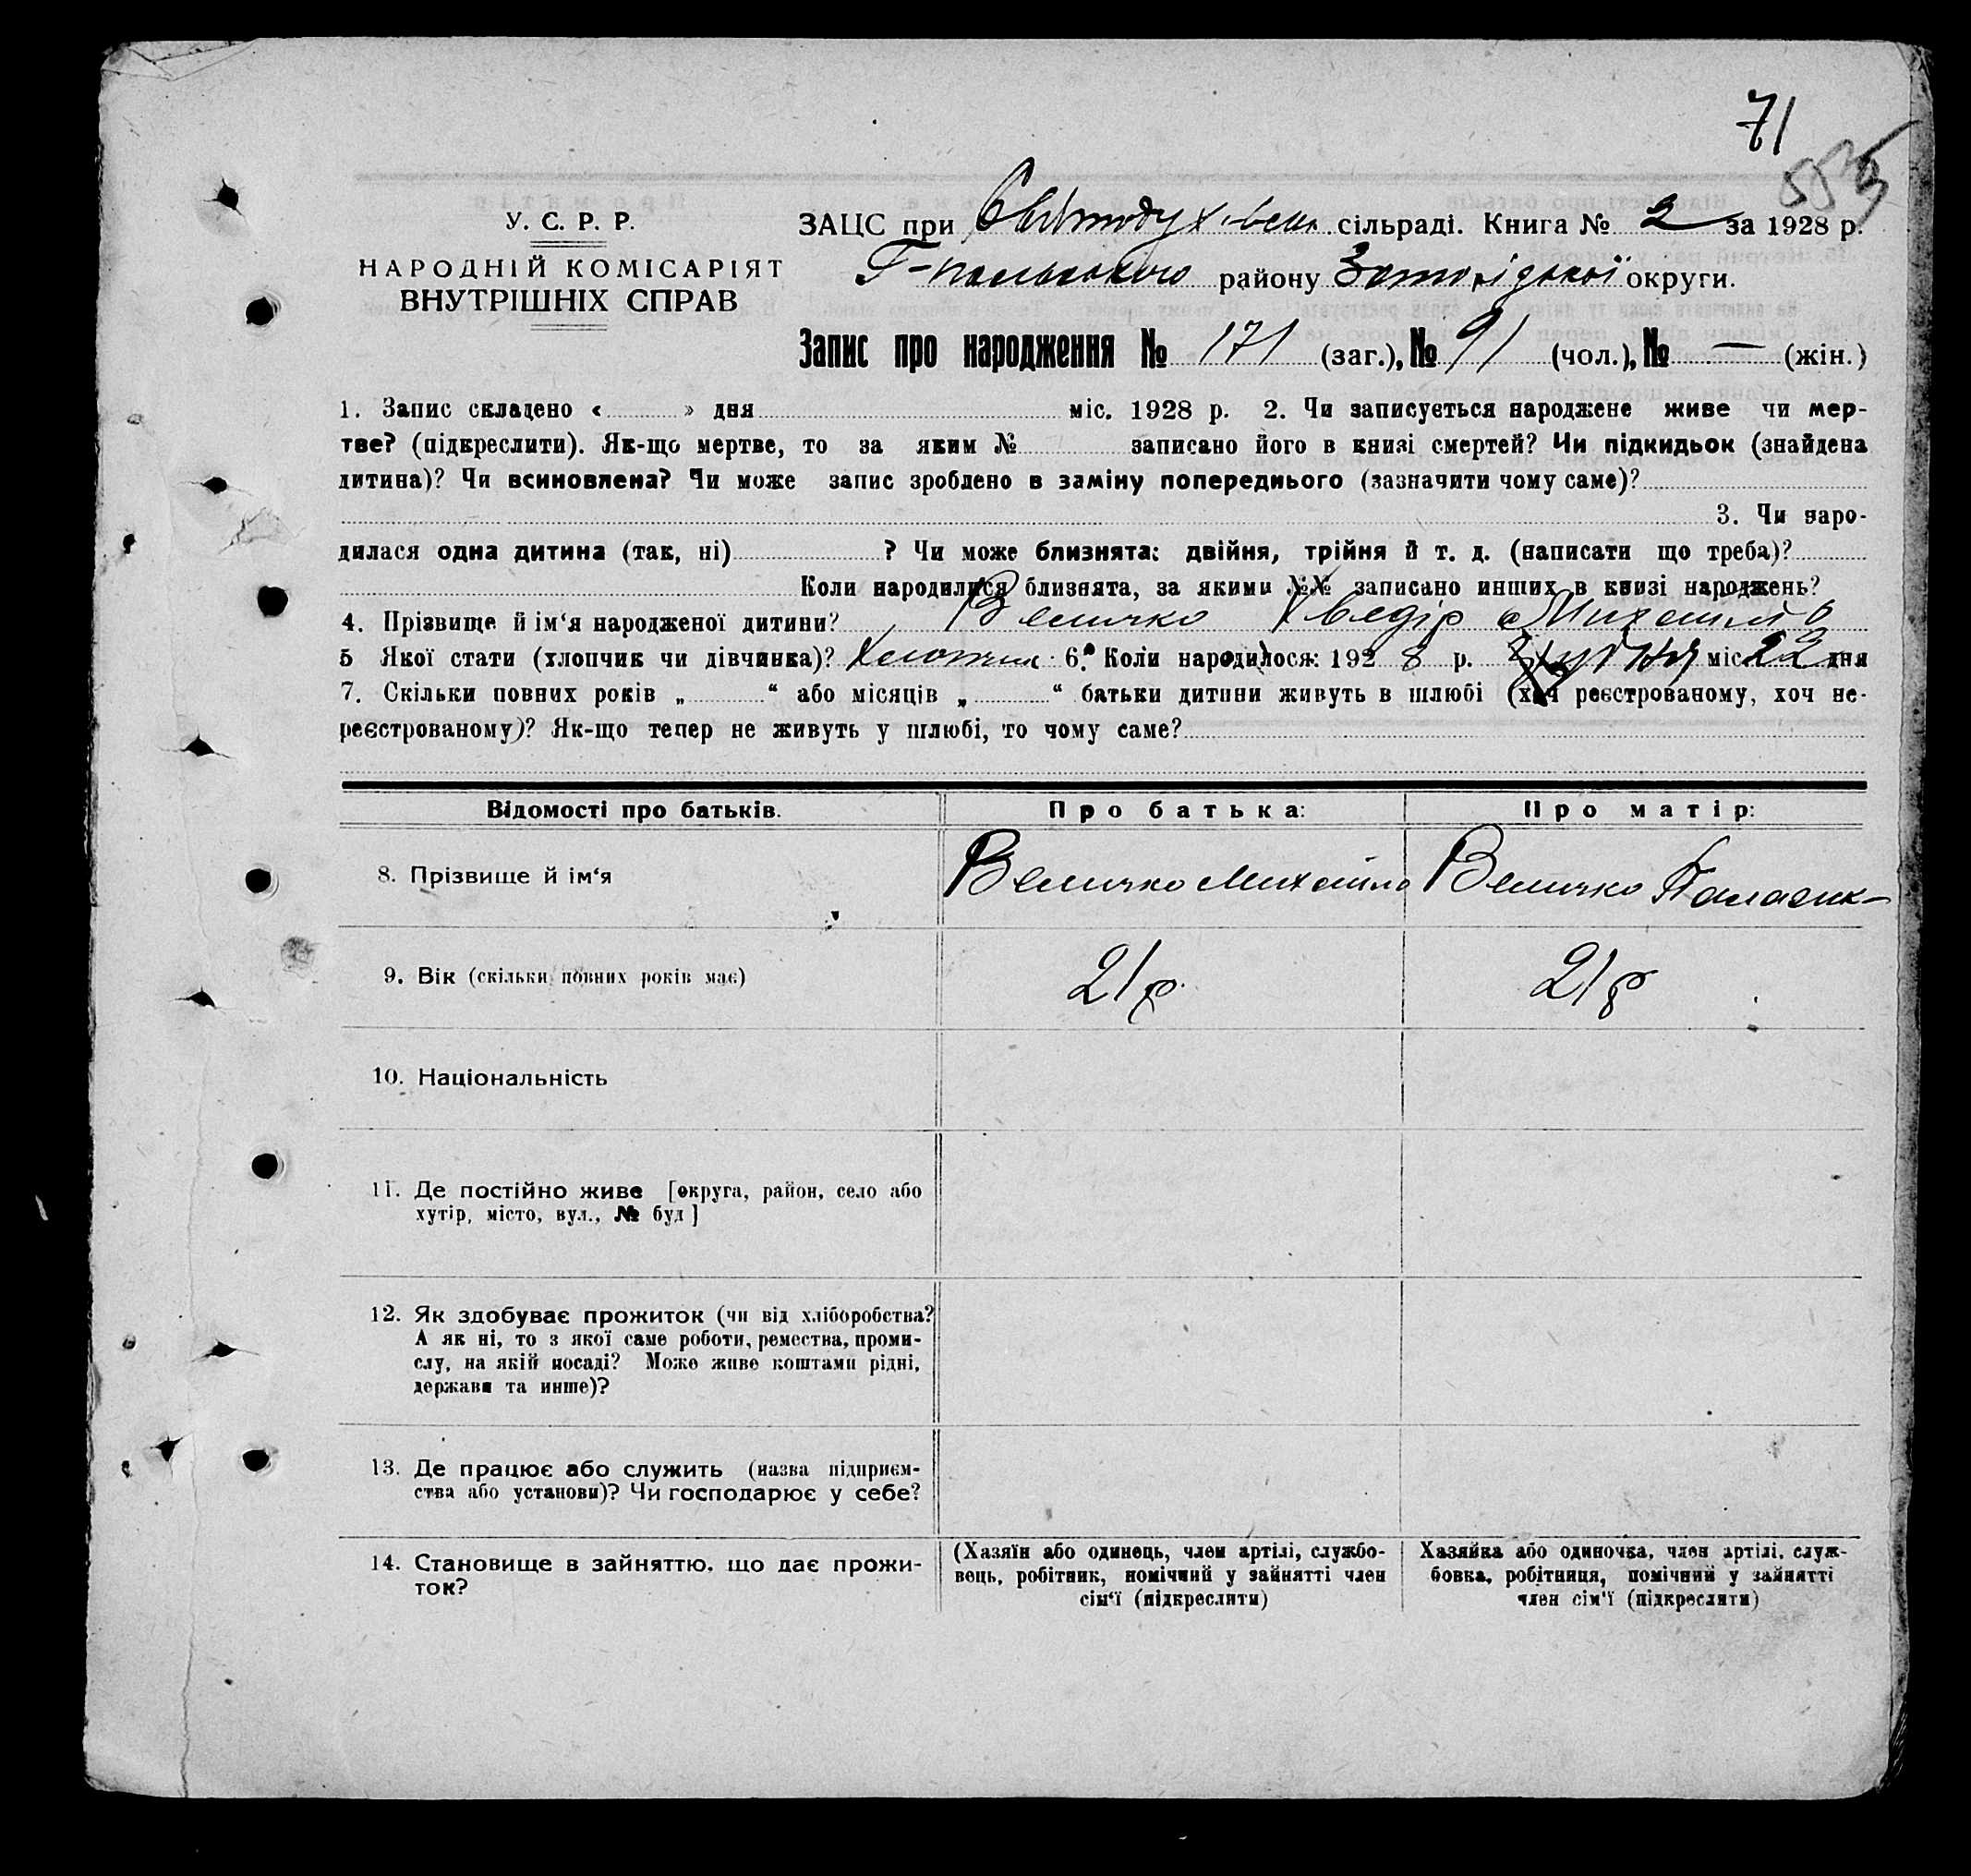 71
У. С. Р. Р.
НАРОДНІЙ КОМІСАРІЯТ
ВНУТРІШНІХ СПРАВ
ЗАЦС при сільраді. Книга № 2 за 1928 р.
Г-польського району округи.
Запис про народження № 171 (заг.), № 91 (чол.), № — (жін.)
1. Запис складено « » дня міс. 1928 р. 2. Чи записується народжене живе чи мер-
тве? (підкреслити). Як-що мертве, то за яким № записано його в книзі смертей? Чи підкидьок (знайдена
дитина)? Чи всиновлена? Чи може запис зроблено в заміну попереднього (зазначити чому саме)?
3. Чи наро-
дилася одна дитина (так, ні) ? Чи може близнята: двійня, трійня й т. д. (написати що треба)?
Коли народилися близнята, за якими №№ записано инших в книзі народжень?
4. Прізвище й ім'я народженої дитини? Величко Хведір
5 Якої стати (хлопчик чи дівчинка)? Хлопчик 6. Коли народилося: 1928 р. міс. 22 дня
7. Скільки повних років „ “ або місяців „ “ батьки дитини живуть в шлюбі (хоч реєстрованому, хоч не-
реєстрованому)? Як-що тепер не живуть у шлюбі, то чому саме?
Відомості про батьків. Про батька: Про матір:
8. Прізвище й ім'я Величко Михайло Величко
9. Вік (скільки повних років має) 21 р. 21 р
10. Національність
11. Де постійно живе [округа, район, село або
хутір, місто, вул., № буд]
12. Як здобуває прожиток (чи від хліборобства?
А як ні, то з якої саме роботи, ремества, проми-
слу, на якій посаді? Може живе коштами рідні,
держави та инше)?
13. Де працює або служить (назва підприєм-
ства або установи)? Чи господарює у себе?
14. Становище в зайняттю, що дає прожи-
ток?
(Хазяїн або одинець, член артілі, службо-
вець, робітник, помічний у зайнятті член
сім'ї (підкреслити)
Хазяйка або одиночка, член артілі, служ-
бовка, робітниця, помічний у зайнятті
член сім'ї (підкреслити)